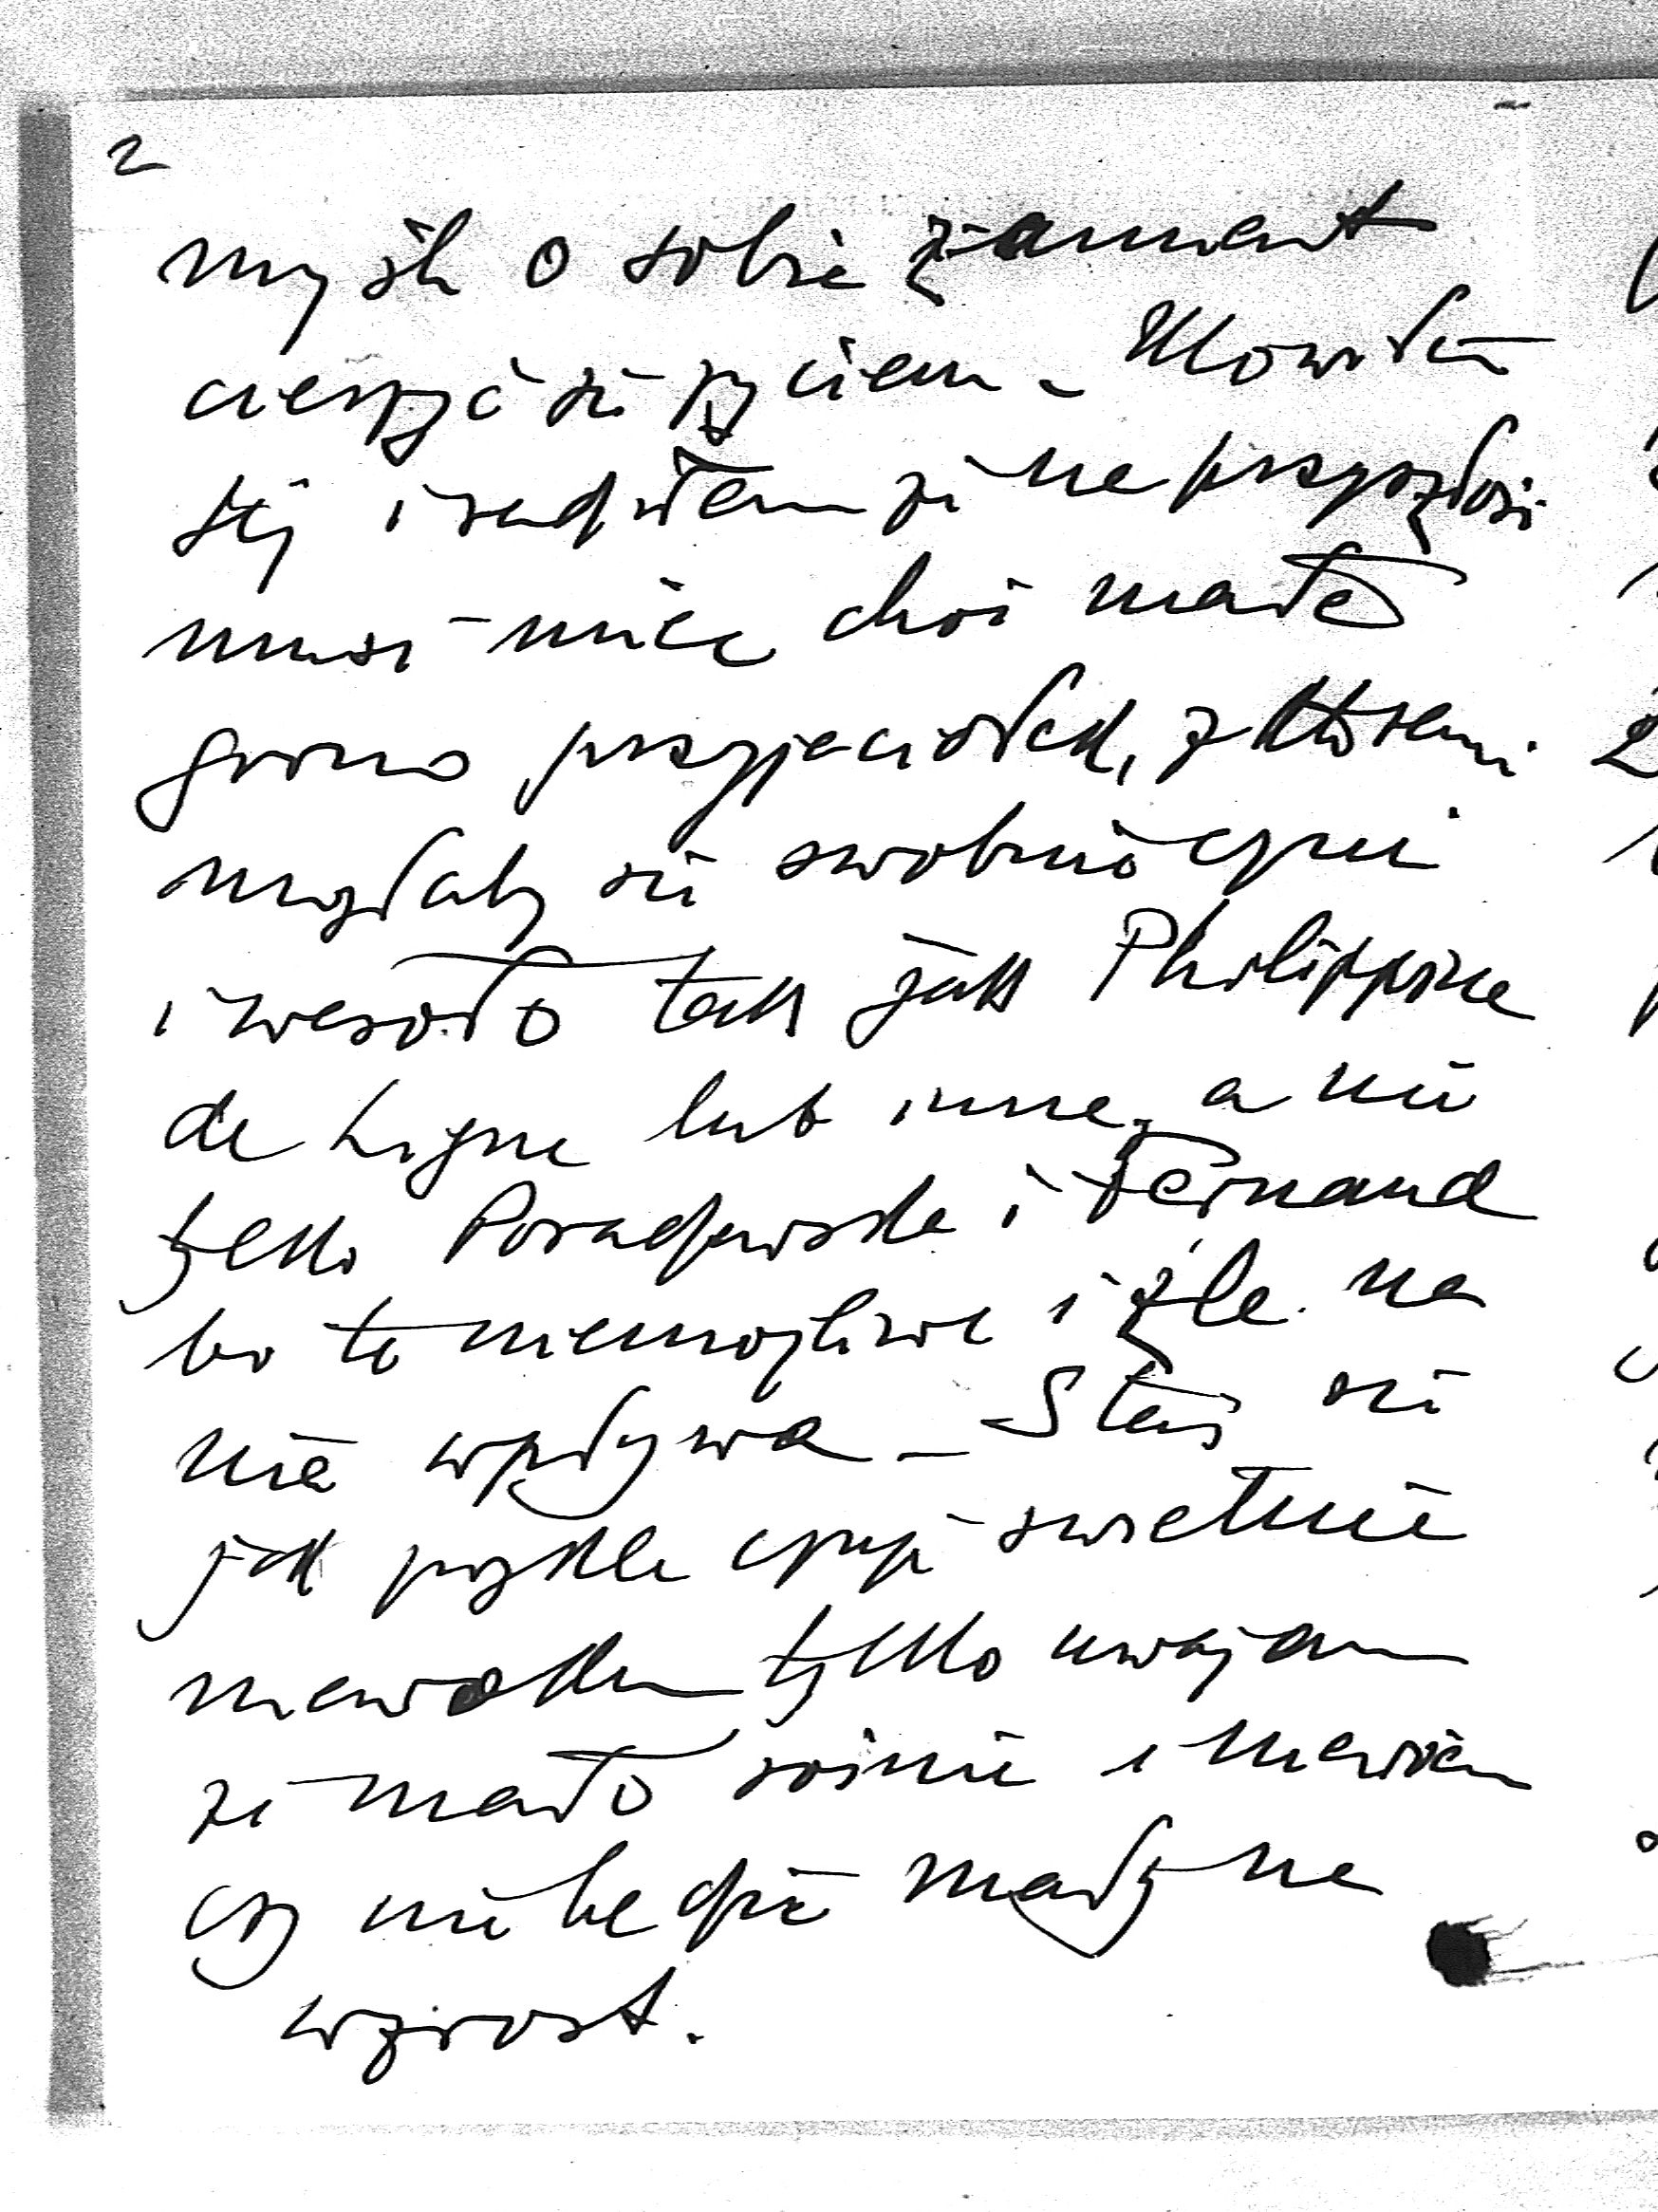 2
myśli o sobie zamiast
cieszyć się życiem – Mówiłem
jej i radziłem że na przyszłość
musi mieć choć małe
grono przyjaciółek, z któremi
mogłaby się swobodnie czuć
i wesoło tak jak Philippine
de Ligne lub inne, a nie
tylko Poradowska i Fernand
bo to niemożliwe i źle na
nią wpływa – Staś się
jak zwykle czuje świetnie
niewątku tylko uważam
że mało rośnie i
czy nie będzie mały na
wzrost.